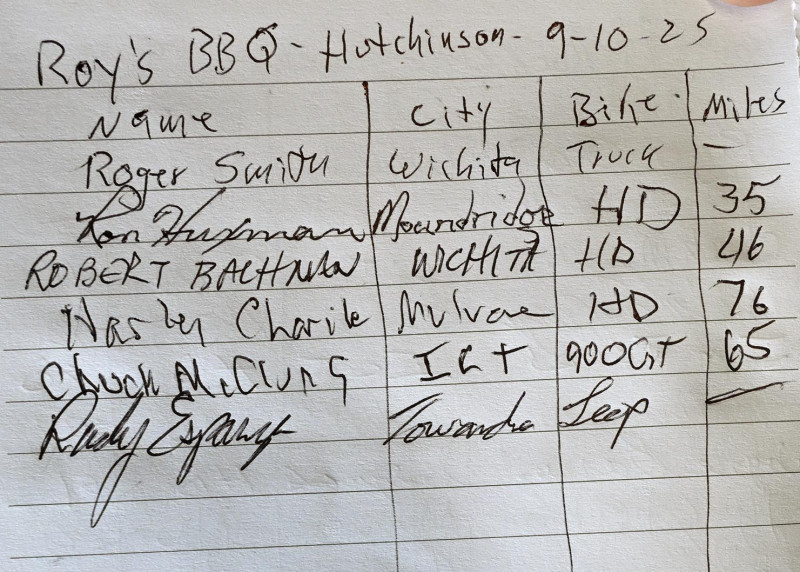 Roy's BBQ - Hutchinson - 9-10-25
Name City Bike Miles
Roger Smith Wichita Truck —
Ron Huxman Moundridge HD 35
ROBERT BACHMAN WICHITA HD 46
Harley Charile Mulvane HD 76
Chuck McClung ICT 900GT 65
Rudy Towanda Jeep —